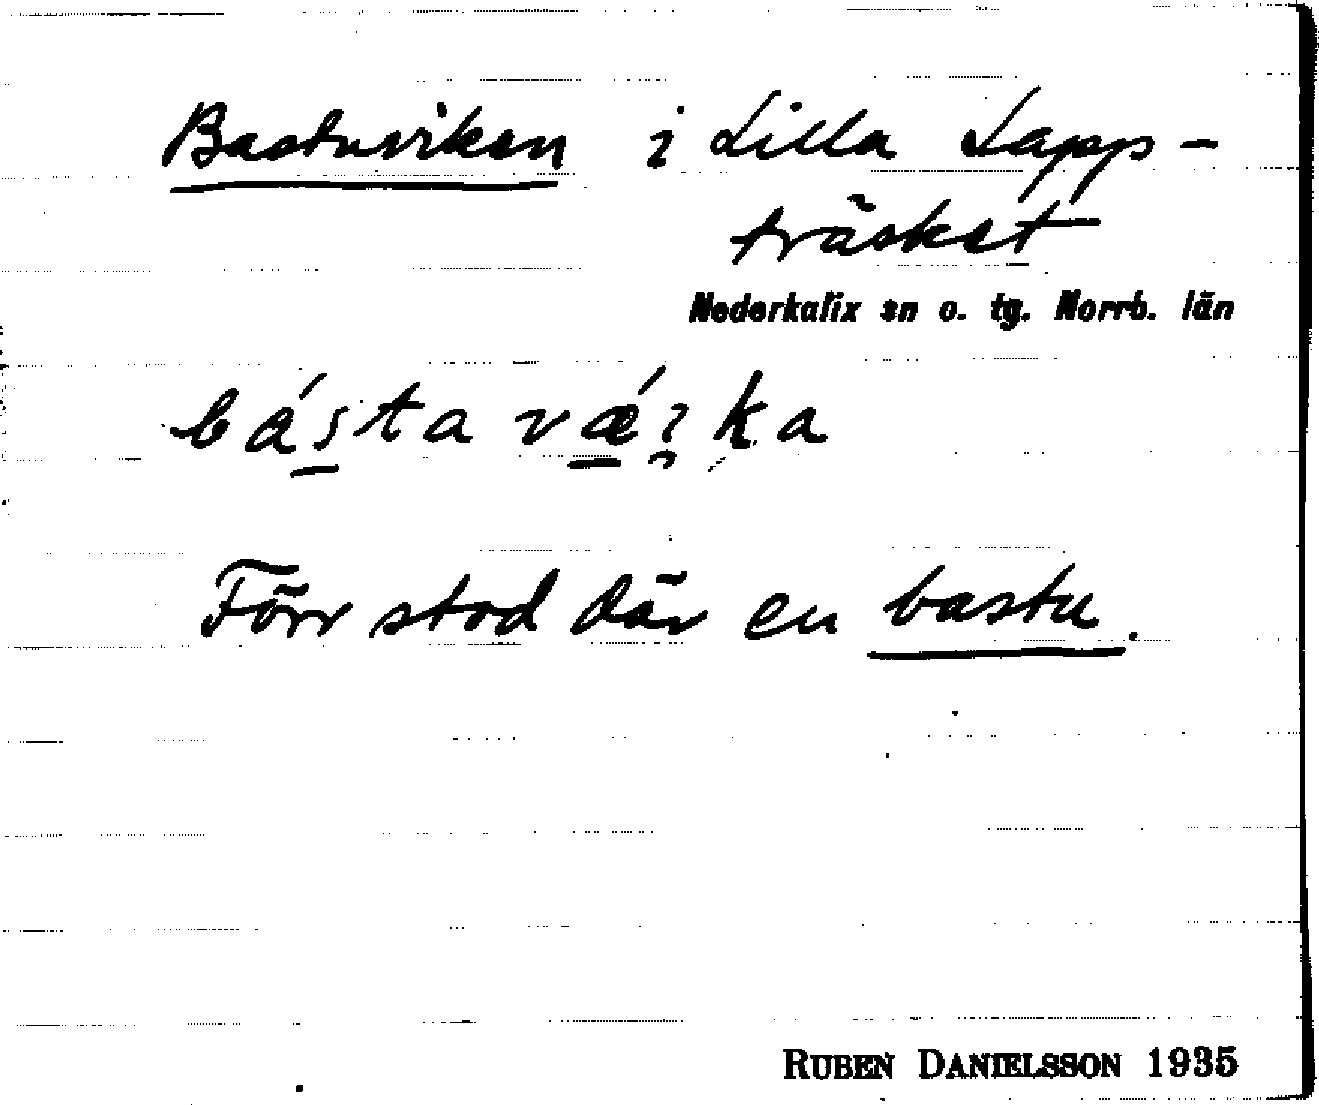 Bastuviken i Lilla Lapp-
träsket
Nederkalix sn o. tg. Norrb. län
básta vǽika
Förr stod där en bastu.
RUBEN DANIELSSON 1935